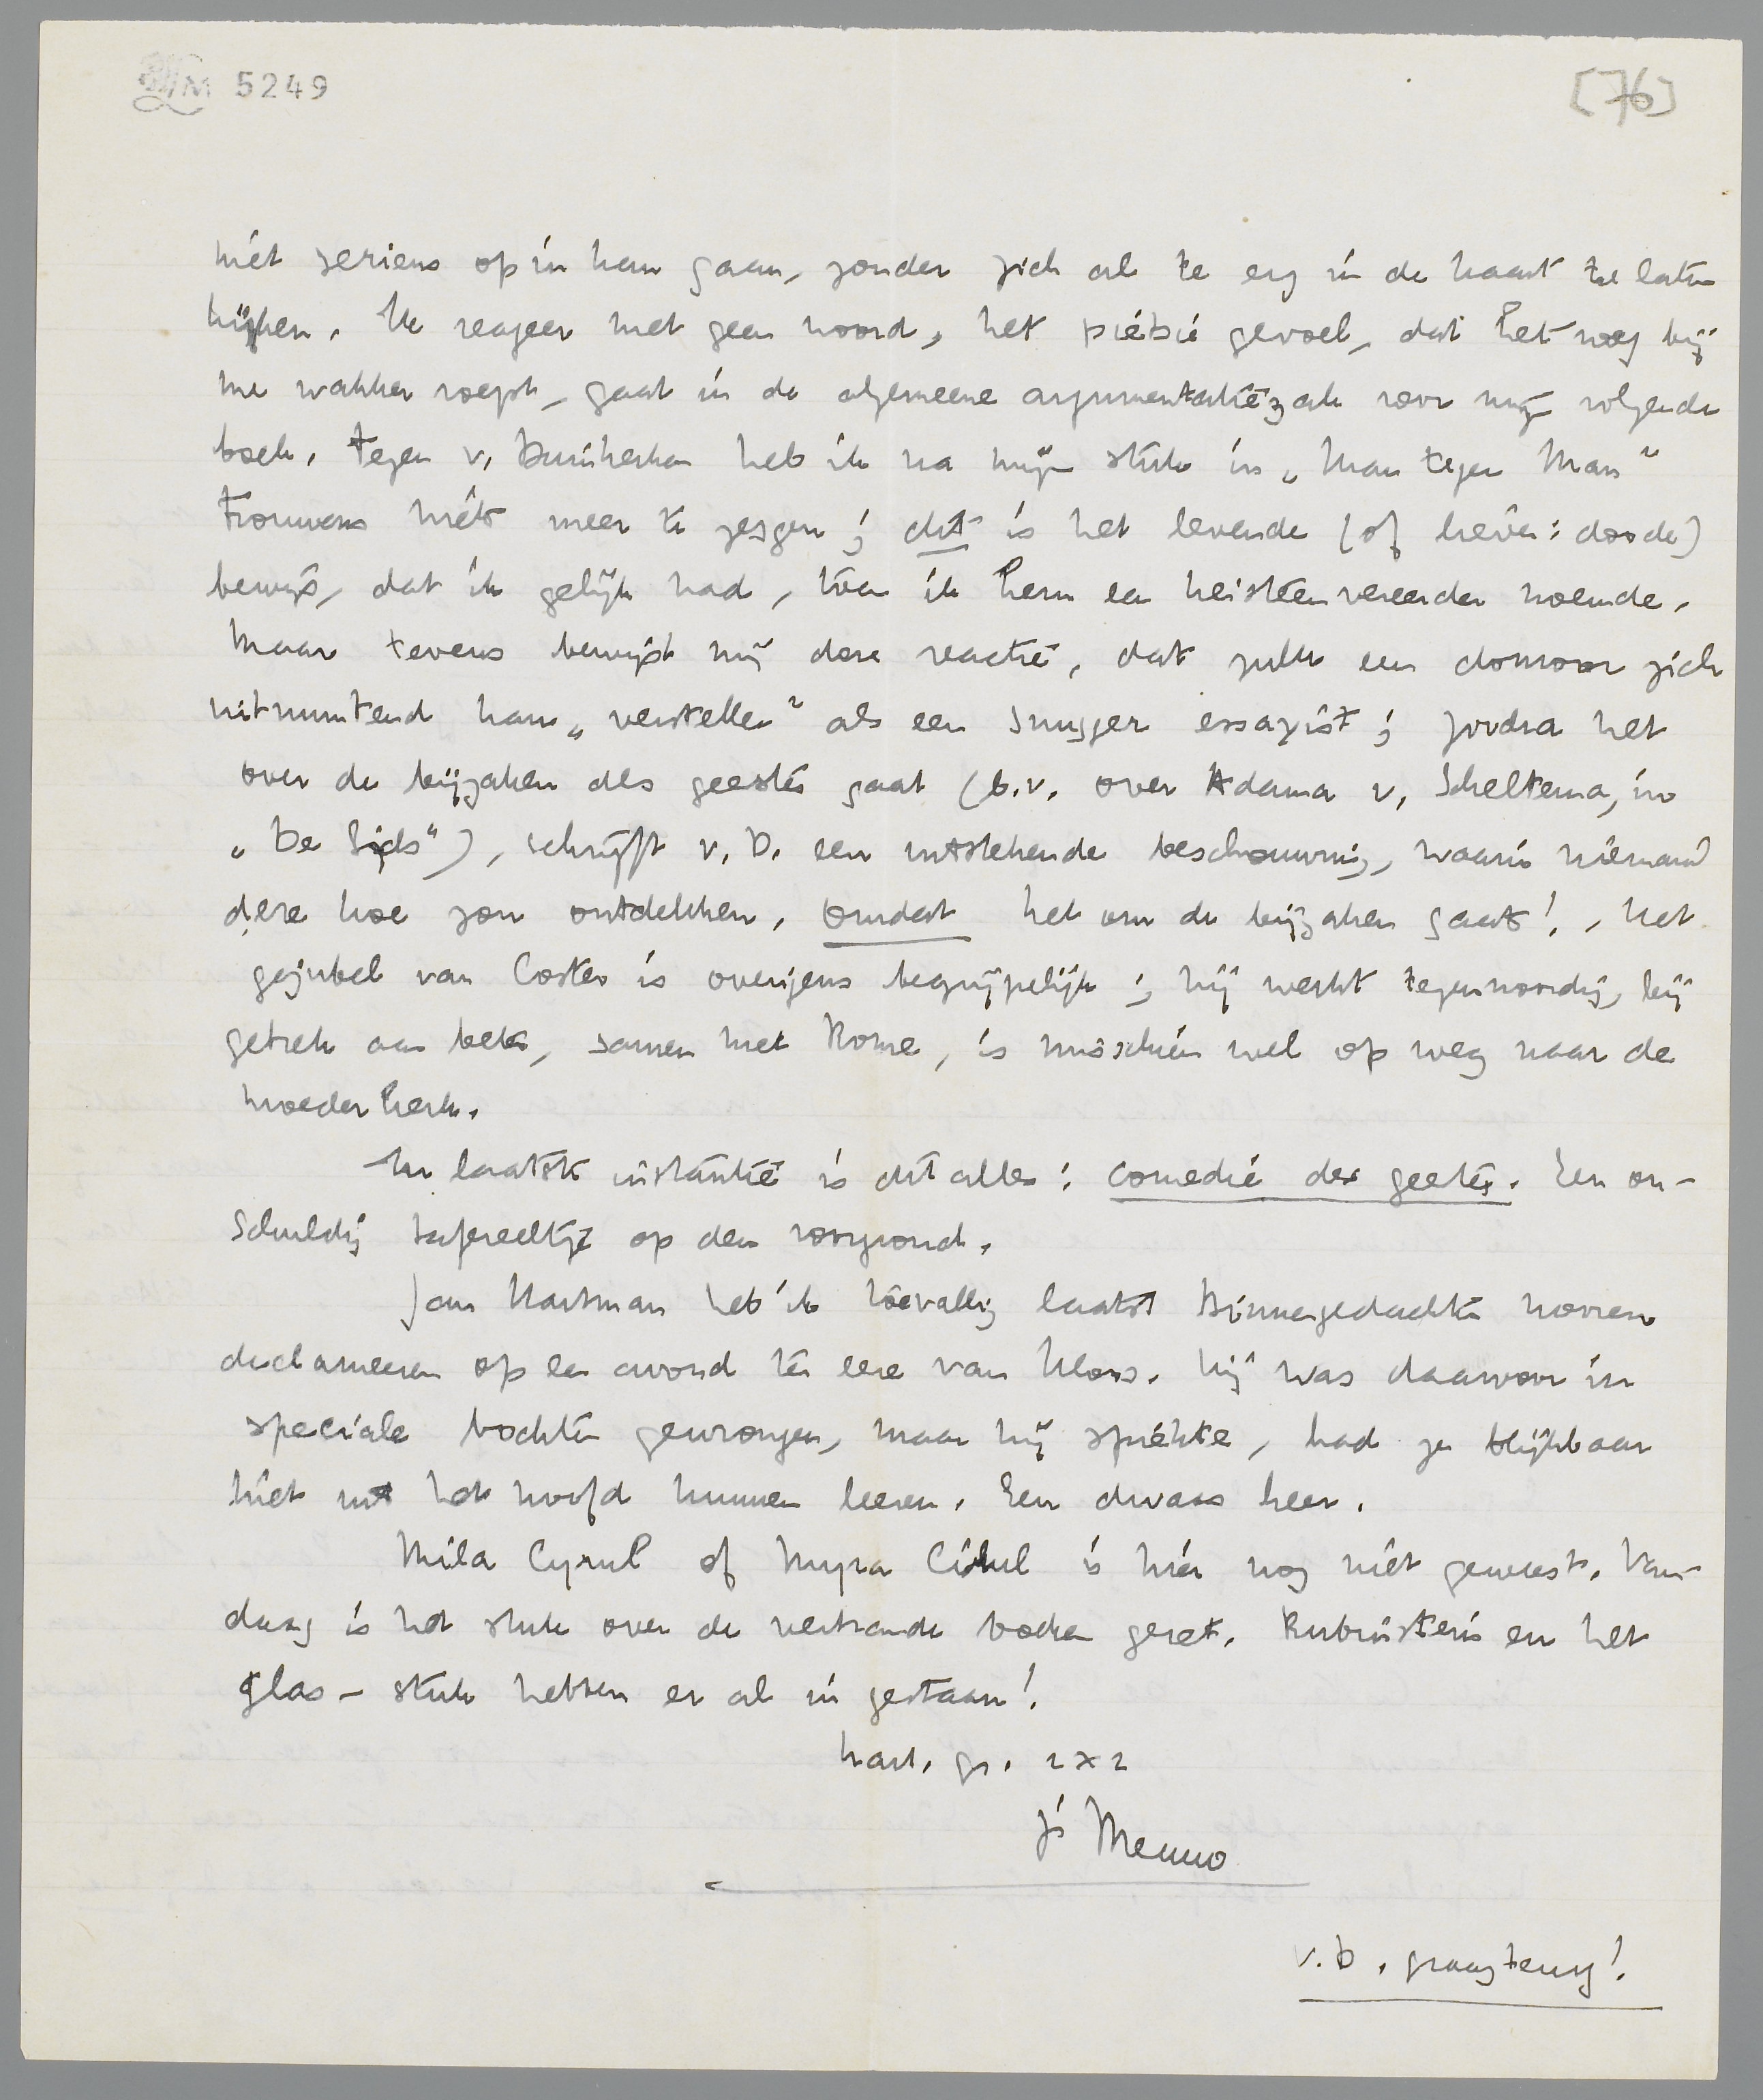 LM 5249
[76]
niet serieus op in kan gaan, zonder zich al te erg in de kaart te laten
kijken. Ik reageer met geen woord, het piépié gevoel, dat het nog bij
me wakker roept, gaat in de algemeene argumentatiezak voor mijn volgende
boek. Tegen v. Duinkerken heb ik na mijn stuk in „Man tegen Man”
trouwens niets meer te zeggen; dit is het levende (of liever: doode)
bewijs, dat ik gelijk had, toen ik hem een keisteenvereerder noemde.
Maar tevens bewijst mij deze reactie, dat zulk een domoor zich
uitmuntend kan „verstellen” als een snugger essayist; zoodra het
over de bijzaken des geestes gaat (b.v. over Adama v. Scheltema, in
„De Gids”), schrijft v. D. een uitstekende beschouwing, waarin niemand
deze koe zou ontdekken, omdat het om de bijzaken gaat!. Het
gejubel van Coster is overigens begrijpelijk; hij werkt tegenwoordig, bij
gebrek aan beter, samen met Rome, is misschien wel op weg naar de
moederkerk.
In laatste instantie is dit alles: comedie des geestes. Een on-
schuldig tafereeltje op den voorgrond.
Jan Musman heb ik toevallig laatst Binnengedachten hooren
declameeren op een avond ter eere van Kloos. Hij was daarvoor in
speciale bochten gewrongen, maar hij spiekte, had ze blijkbaar
niet uit het hoofd kunnen leeren. Een dwaas heer.
Mila Cyrul of Myra Cirul is hier nog niet geweest. Van-
daag is het stuk over de verbrande boeken gezet. Rubinstein en het
glas-stuk hebben er al in gestaan!
hart. gr. 2 x 2
je Menno
v.D. graag terug!